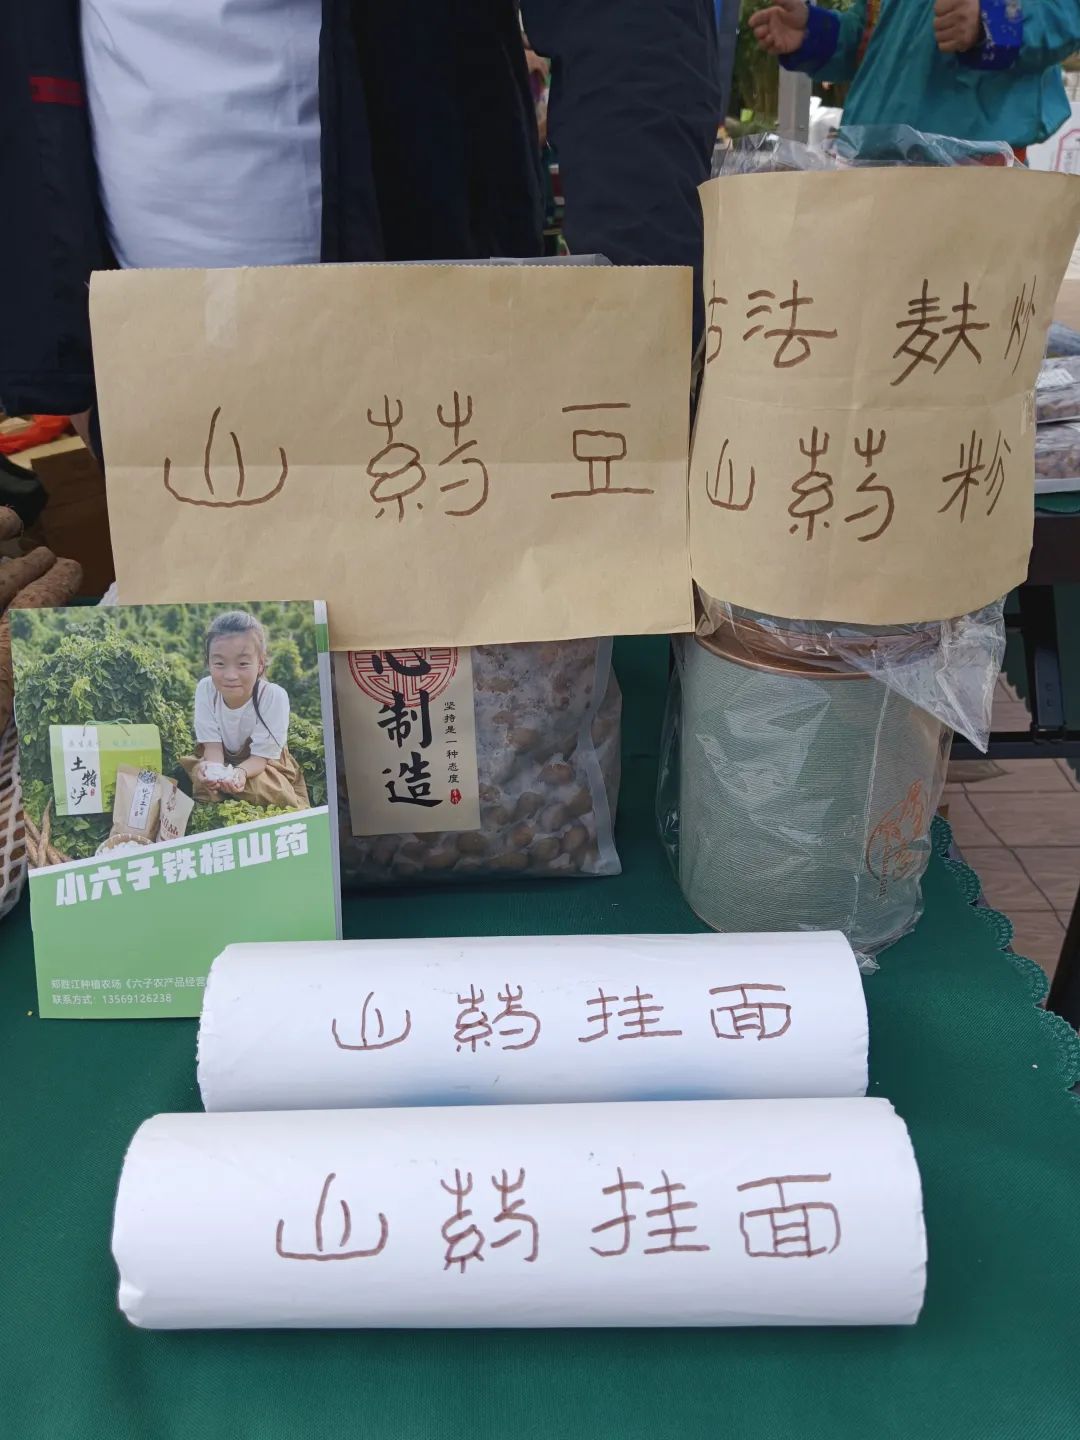 山药豆
古法 麸炒
山药粉
心制造
坚持是一种态度
土特产
小六子铁棍山药
郑胜江种植农场《六子农产品经营
联系方式：13569126238
山药挂面
山药挂面